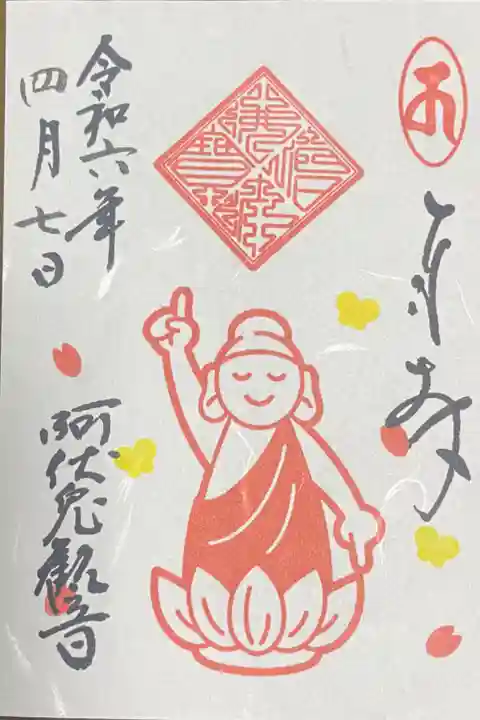 奉拝
令和六年
四月七日
阿伏兎観音